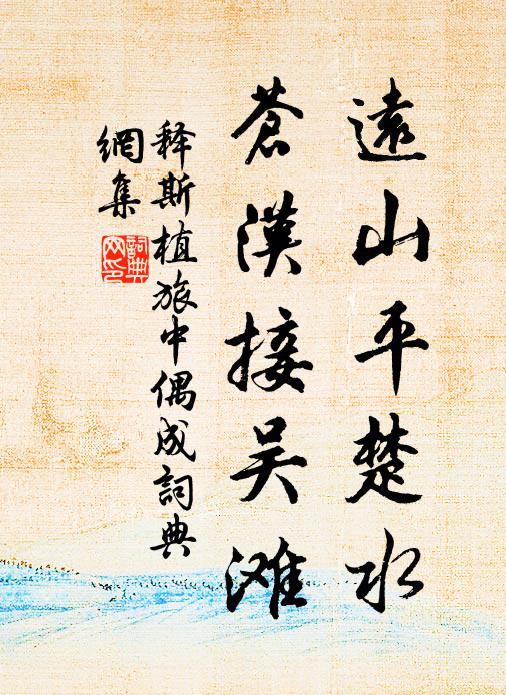 遠山平楚水
蒼漢接吴滩
释斯植旅中偶成詞典
網集
詞典
网印